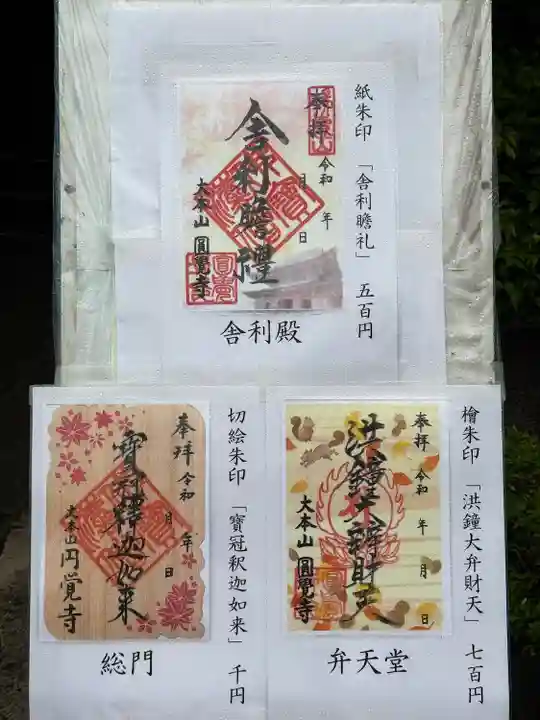 紙朱印 「舎利瞻礼」 五百円
奉拝
舎利瞻禮
令和 年
月 日
大本山 圓覺寺
舎利殿
切絵朱印 「寳冠釈迦如来」 千円
奉拝 令和 年
月 日
寳冠釋迦如来
大本山 円覚寺
総門
檜朱印 「洪鐘大弁財天」 七百円
奉拝 令和 年 月 日
洪鐘大辨財天
大本山 圓覺寺
弁天堂